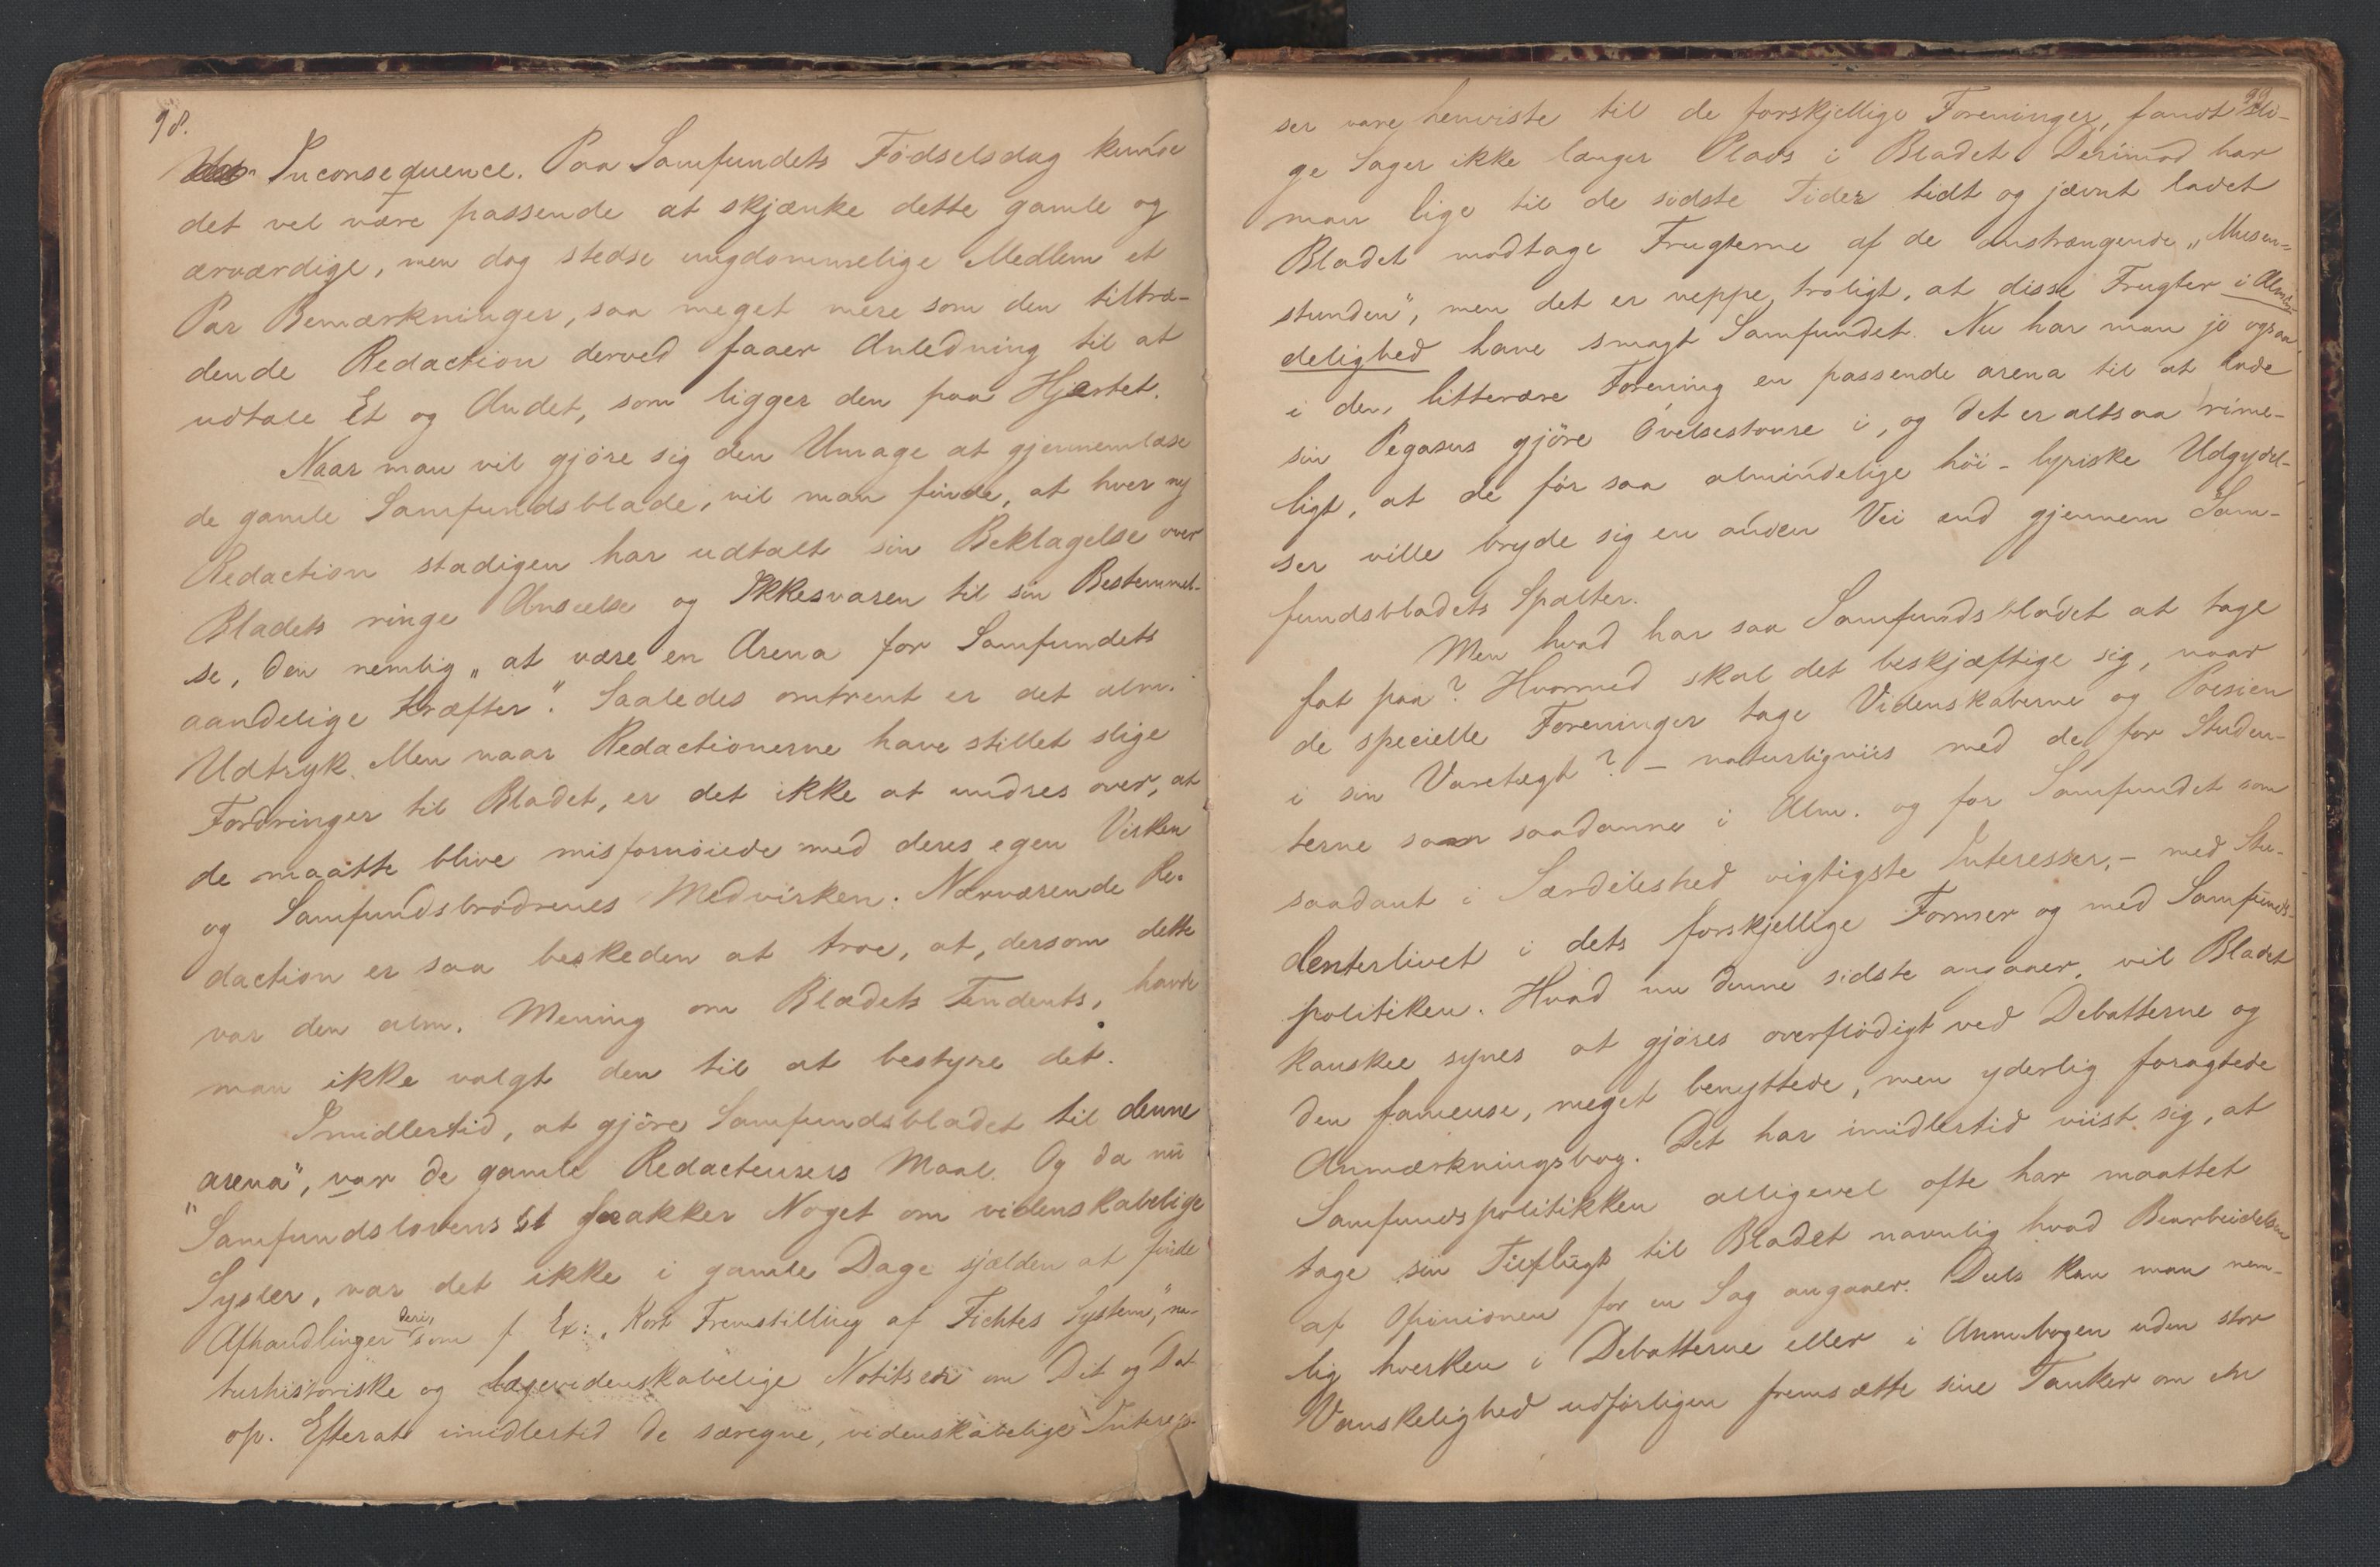 98.
Inconsequence. Paa Samfundets Födselsdag kunde
det vel være passende at skjænke dette gamle og
ærværdige, men dog stedse ungdommelige Medlem et
Par Bemærkninger, saa meget mere som den tiltræ-
dende Redaction derved faaer Anledning til at
udtale Et og Andet, som ligger den paa Hjertet.
Naar man vil gjöre sig den Umage at gjennemlæse
de gamle Samfundsblade, vil man finde, at hver ny
Redaction stadigen har udtalt sin Beklagelse over
Bladets ringe Anseelse og Ikkesvaren til sin Bestemmel-
se, den nemlig „at være en Arena for Samfundets
aandelige Kræfter“. Saaledes omtrent er det alm.
Udtryk. Men naar Redactionerne have stillet slige
Fordringer til Bladet, er det ikke at undres over, at
de maatte blive misfornöiede med deres egen Virken
og Samfundsbrödrenes Medvirken. Nærværende Re-
daction er saa beskeden at troe, at, dersom dette
var den alm. Mening om Bladets Tendents, havde
man ikke valgt den til at bestyre det.
Imidlertid, at gjöre Samfundsbladet til denne
„arena“, var de gamle Redacteurers Maal. Og da nu
Samfundslovens § 1 snakker Noget om videnskabelige
Sysler, var det ikke i gamle Dage sjælden at finde
Afhandlinger deri, som f. Ex: „Kort Fremstilling af Fichtes System,“ na-
turhistoriske og lægevidenskabelige Notitser om Dit og Dat
op. Efterat imidlertid de særegne, videnskabelige Interes-
99
ser vare henviste til de forskjellige Foreninger, fandt sli-
ge Sager ikke længer Plads i Bladet. Derimod har
man lige til de sidste Tider tidt og jævnt ladet
Bladet modtage Frugterne af de anstrængende „Musen-
stunden“, men det er neppe troligt, at disse Frugter i Almin-
delighed have smagt Samfundet. Nu har man jo ogsaa
i den litterære Forening en passende arena til at lade
sin Pegasus gjöre Övelsestoure i, og det er altsaa rime-
ligt, at de för saa almindelige höi-lyriske Udgydel-
ser ville bryde sig en anden Vei end gjennem Sam-
fundsbladets Spalter.
Men hvad har saa Samfundsbladet at tage
fat paa? Hvormed skal det beskjæftige sig, naar
de specielle Foreninger tage Videnskaberne og Poesien
i sin Varetægt? – naturligviis med de for Studen-
terne som saadanne i Alm. og for Samfundet som
saadant i Særdeleshed vigtigste Interesser, – med Stu-
denterlivet i dets forskjellige Former og med Samfunds-
politiken. Hvad nu denne sidste angaaer, vil Bladet
kanskee synes at gjöres overflödigt ved Debatterne og
den fameuse, meget benyttede, men yderlig foragtede
Anmærkningsbog. Det har imidlertid viist sig, at
Samfundspolitikken alligevel ofte har maattet
tage sin Tilflugt til Bladet navnlig hvad Bearbeidelsen
af Opinionen for en Sag angaaer. Deels kan man nem-
lig hverken i Debatterne eller i Anmbogen uden stor
Vanskelighed udförligen fremsætte sine Tanker om en